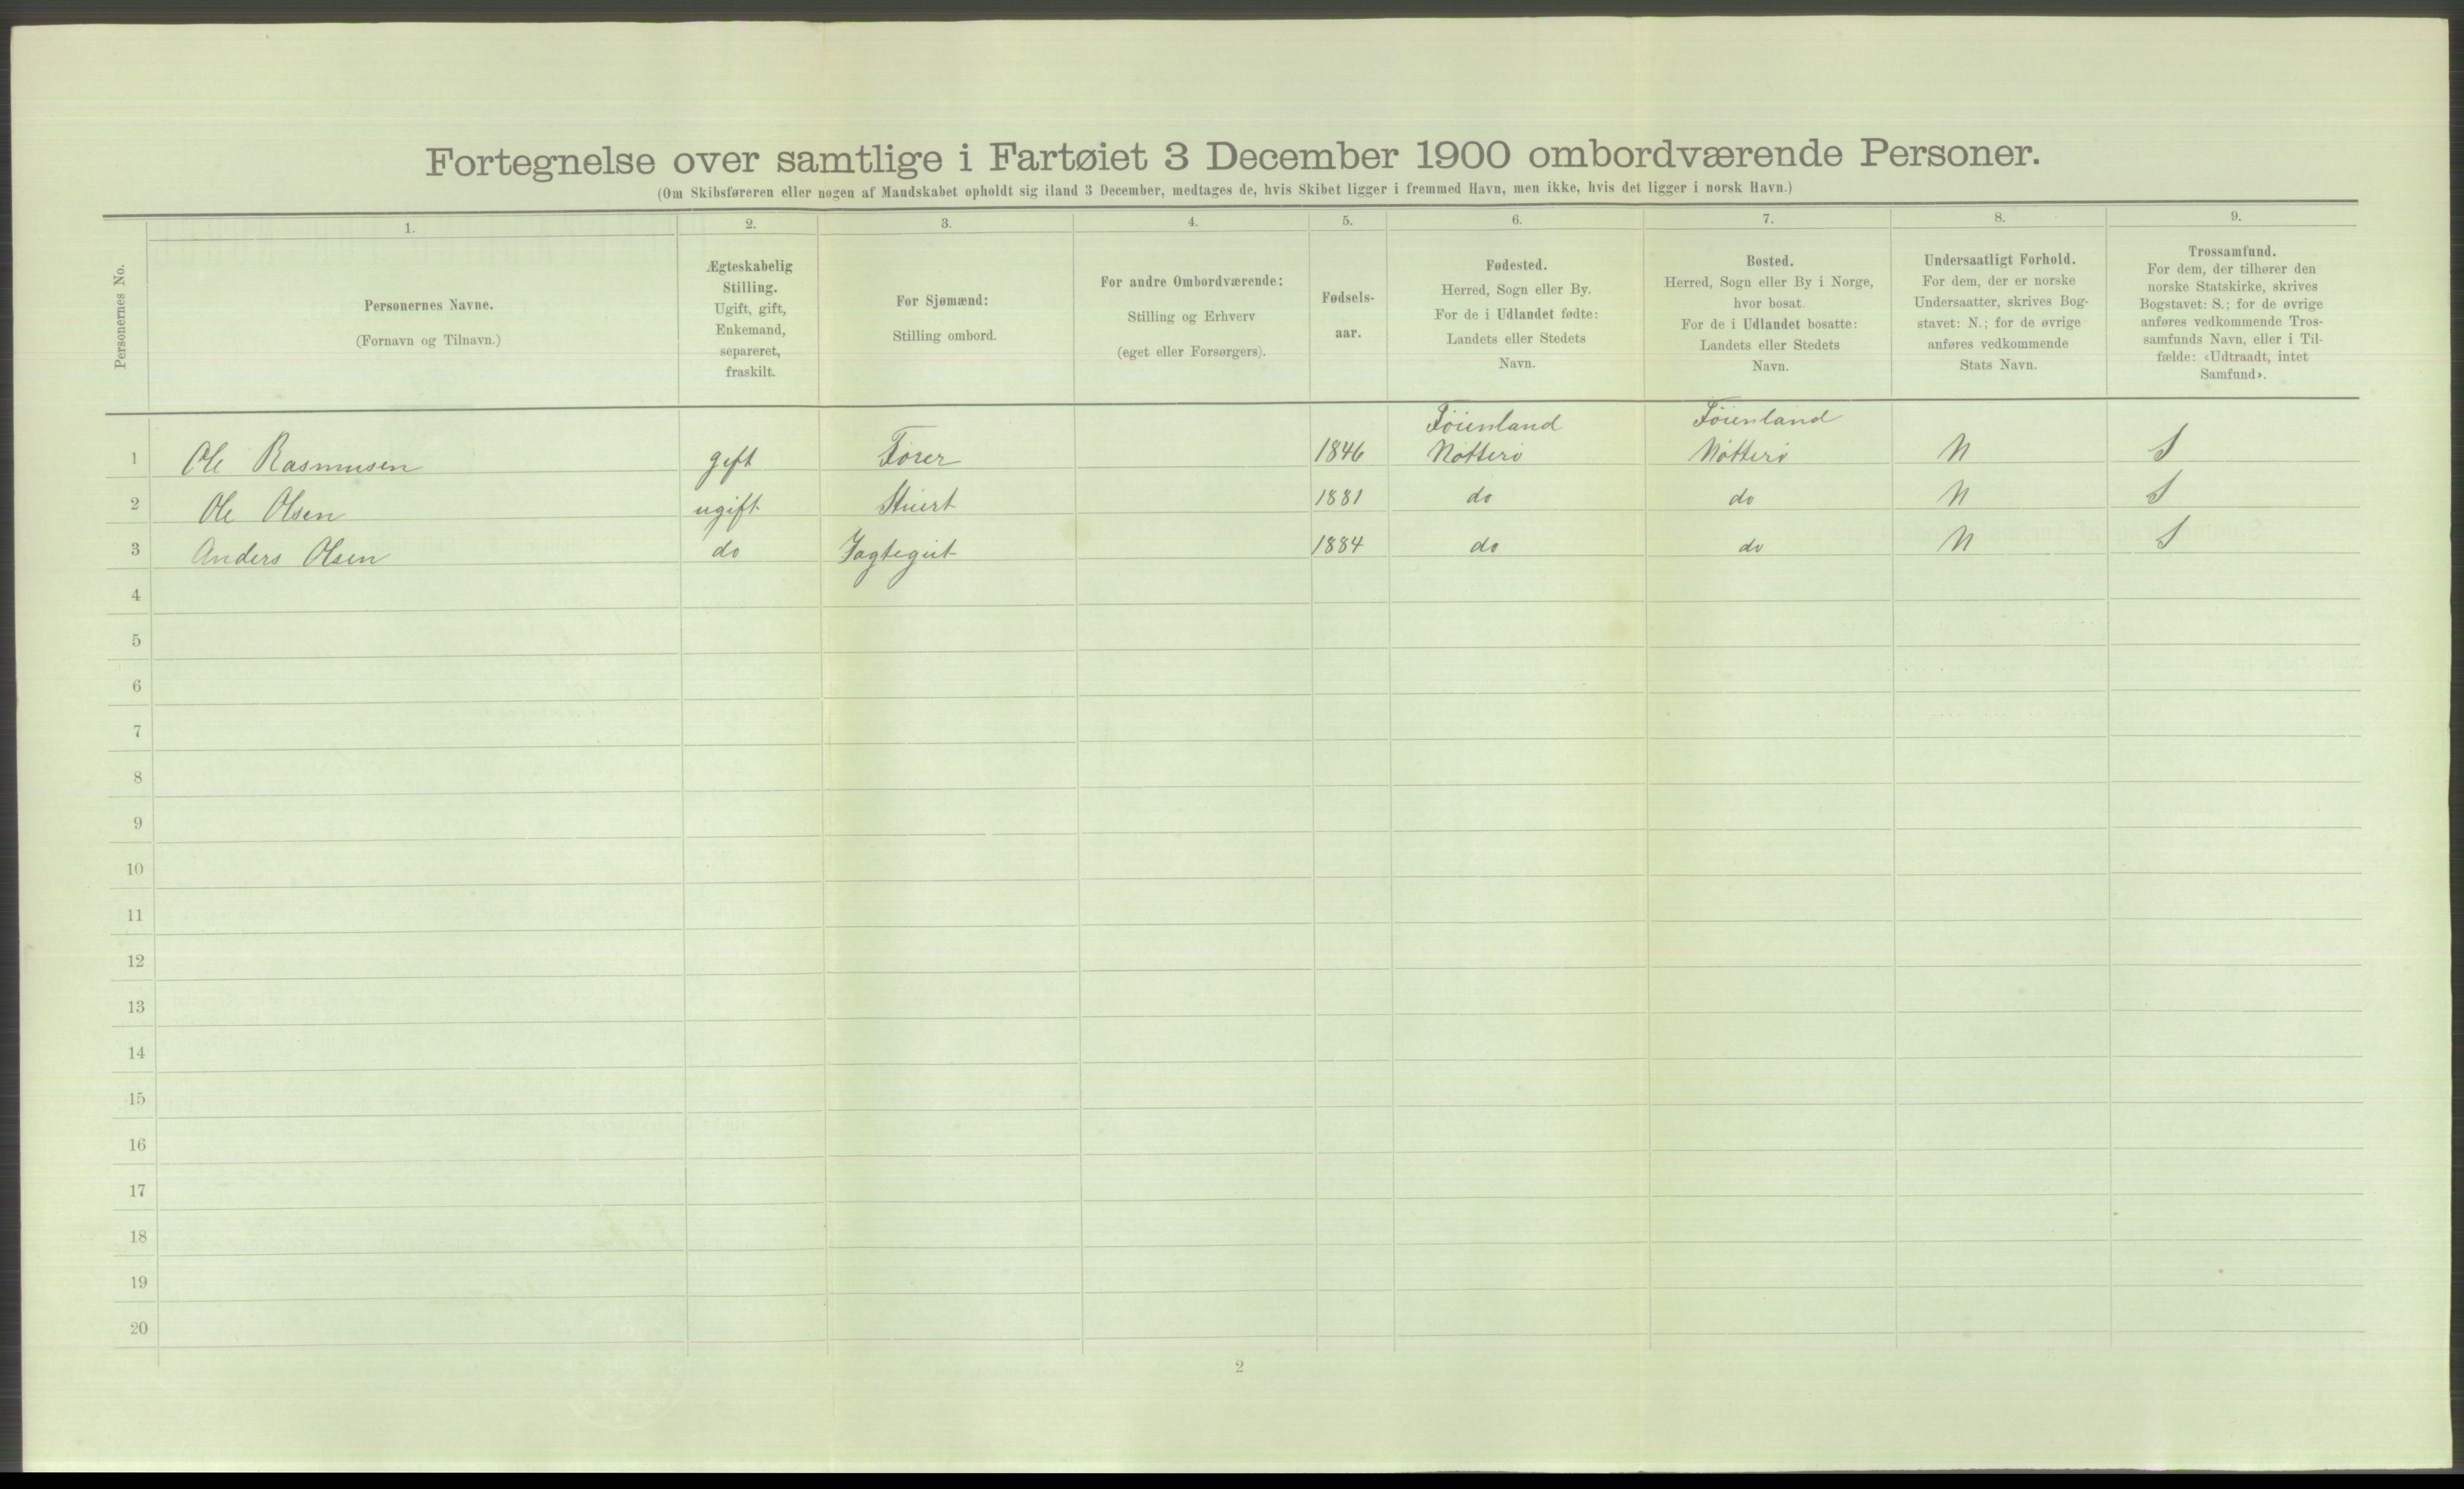 Fortegnelse over samtlige i Fartøiet 3 December 1900 ombordværende Personer.
(Om Skibsføreren eller nogen af Mandskabet opholdt sig iland 3 December, medtages de, hvis Skibet ligger i fremmed Havn, men ikke, hvis det ligger i norsk Havn.)
Personernes No.
1. 2. 3. 4. 5. 6. 7. 8. 9.
Personernes Navne.
(Fornavn og Tilnavn.)
Ægteskabelig
Stilling.
Ugift, gift,
Enkemand,
separeret,
fraskilt.
For Sjømænd:
Stilling ombord.
For andre Ombordværende:
Stilling og Erhverv
(eget eller Forsørgers).
Fødsels-
aar.
Fødested.
Herred, Sogn eller By.
For de i Udlandet fødte:
Landets eller Stedets
Navn.
Bosted.
Herred, Sogn eller By i Norge,
hvor bosat.
For de i Udlandet bosatte:
Landets eller Stedets
Navn.
Undersaatligt Forhold.
For dem, der er norske
Undersaatter, skrives Bog-
stavet: N.; for de øvrige
anføres vedkommende
Stats Navn.
Trossamfund.
For dem, der tilhører den
norske Statskirke, skrives
Bogstavet: S.; for de øvrige
anføres vedkommende Tros-
samfunds Navn, eller i Til-
fælde: «Udtraadt, intet
Samfund».
Föienland Föienland
1 Ole Rasmusen gift Förer 1846 Nötterö Nötterö N S
2 Ole Olsen ugift Stuert 1881 do do N S
3 Anders Olsen do Jagtegut 1884 do do N S
4
5
6
7
8
9
10
11
12
13
14
15
16
17
18
19
20
2